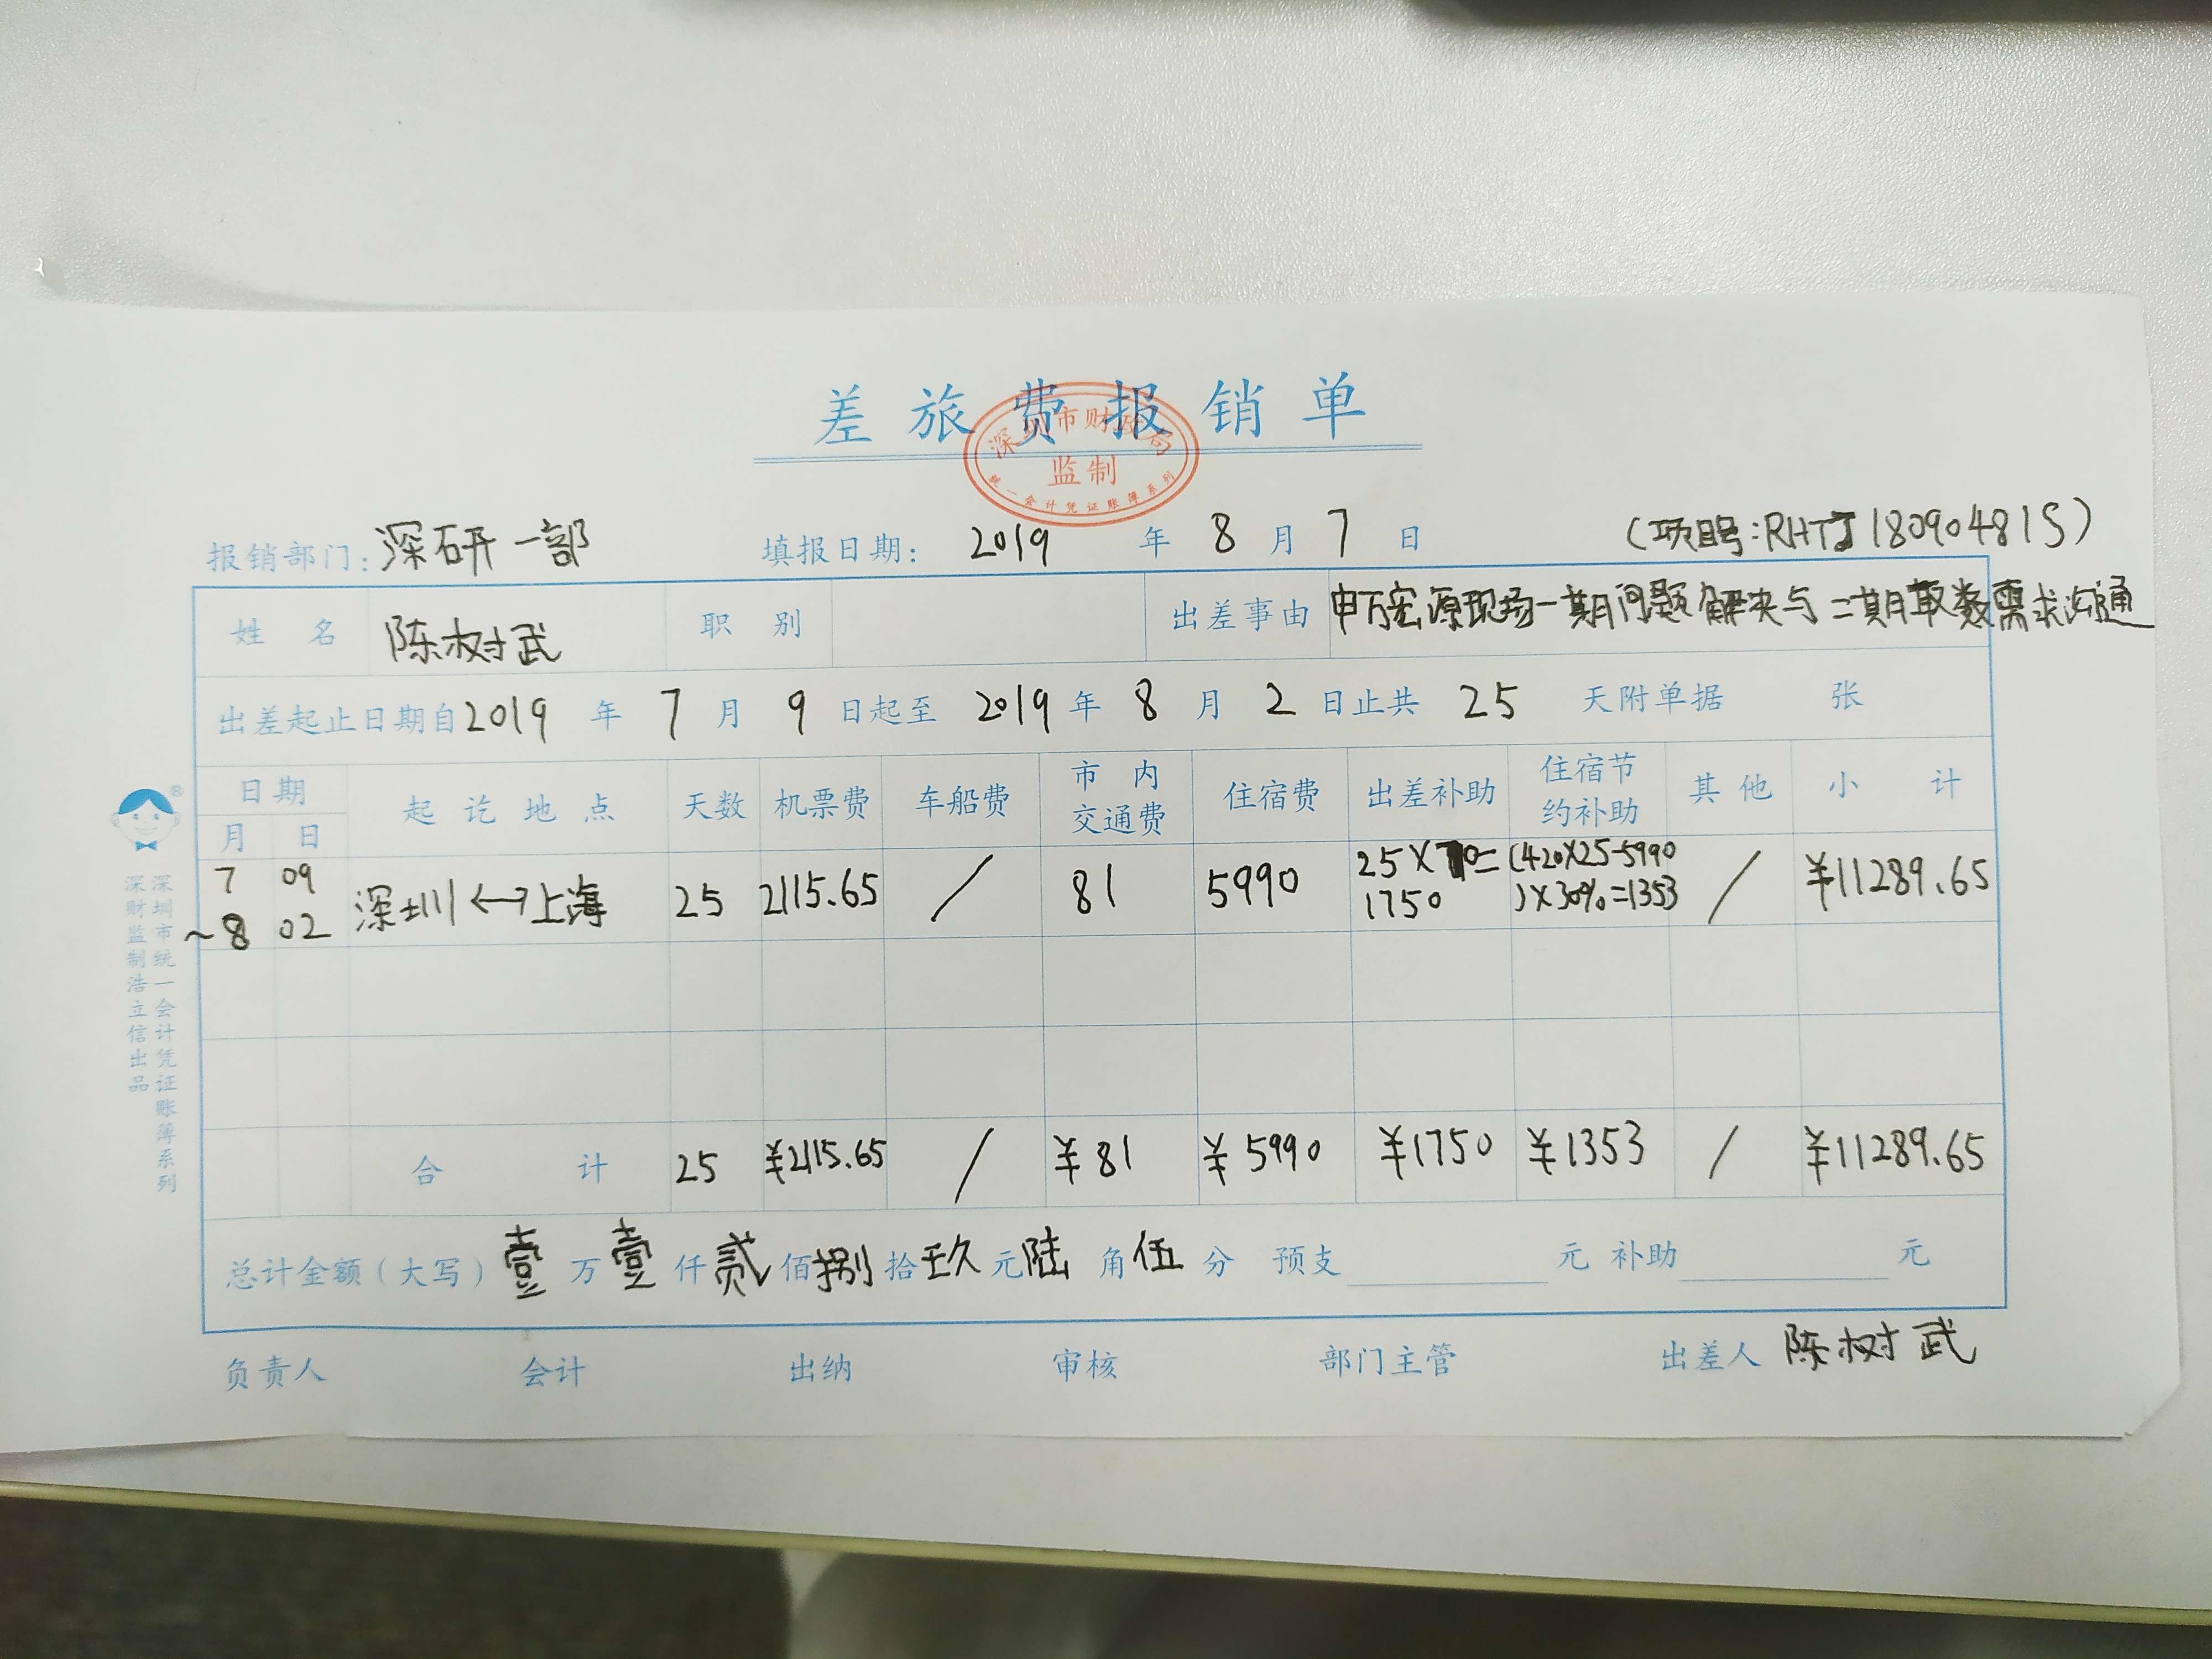 差旅费报销单
深圳市财
监制
统一会计凭证账簿系列
(项目号:RHTJ18090481S)
报销部门:深研一部 填报日期: 2019 年 8 月 7 日
姓名 陈树武 职别 出差事由 申万宏源现场一期问题解决与二期取数需求沟通
出差起止日期自 2019 年 7 月 9 日起至 2019 年 8 月 2 日止共 25 天附单据 张
日期 起讫地点 天数 机票费 车船费 市内交通费 住宿费 出差补助 住宿节约补助 其他 小计
月 日
7 09 深圳←→上海 25 2115.65 / 81 5990 25×70=1750 (420×25-5990)×30%=1353 / ¥11289.65
~8 02
合计 25 ¥2115.65 / ¥81 ¥5990 ¥1750 ¥1353 / ¥11289.65
总计金额(大写) 壹 万 壹 仟 贰 佰 捌 拾 玖 元 陆 角 伍 分 预支 元 补助 元
负责人 会计 出纳 审核 部门主管 出差人 陈树武
深圳市统一会计凭证账簿系列
深财监制 浩立信出品
®